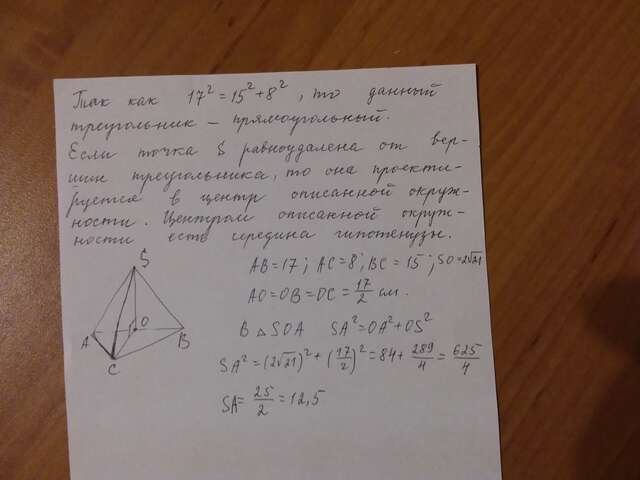 Так как 17² = 15² + 8², то данный
треугольник – прямоугольный.
Если точка S равноудалена от вер-
шин треугольника, то она проекти-
руется в центр описанной окруж-
ности. Центром описанной окруж-
ности есть середина гипотенузы.
AB = 17; AC = 8; BC = 15; SO = 2√21
AO = OB = OC = 17/2 см.
В △ SOA SA² = OA² + OS²
SA² = (2√21)² + (17/2)² = 84 + 289/4 = 625/4
SA = 25/2 = 12,5
S
A
O
B
C